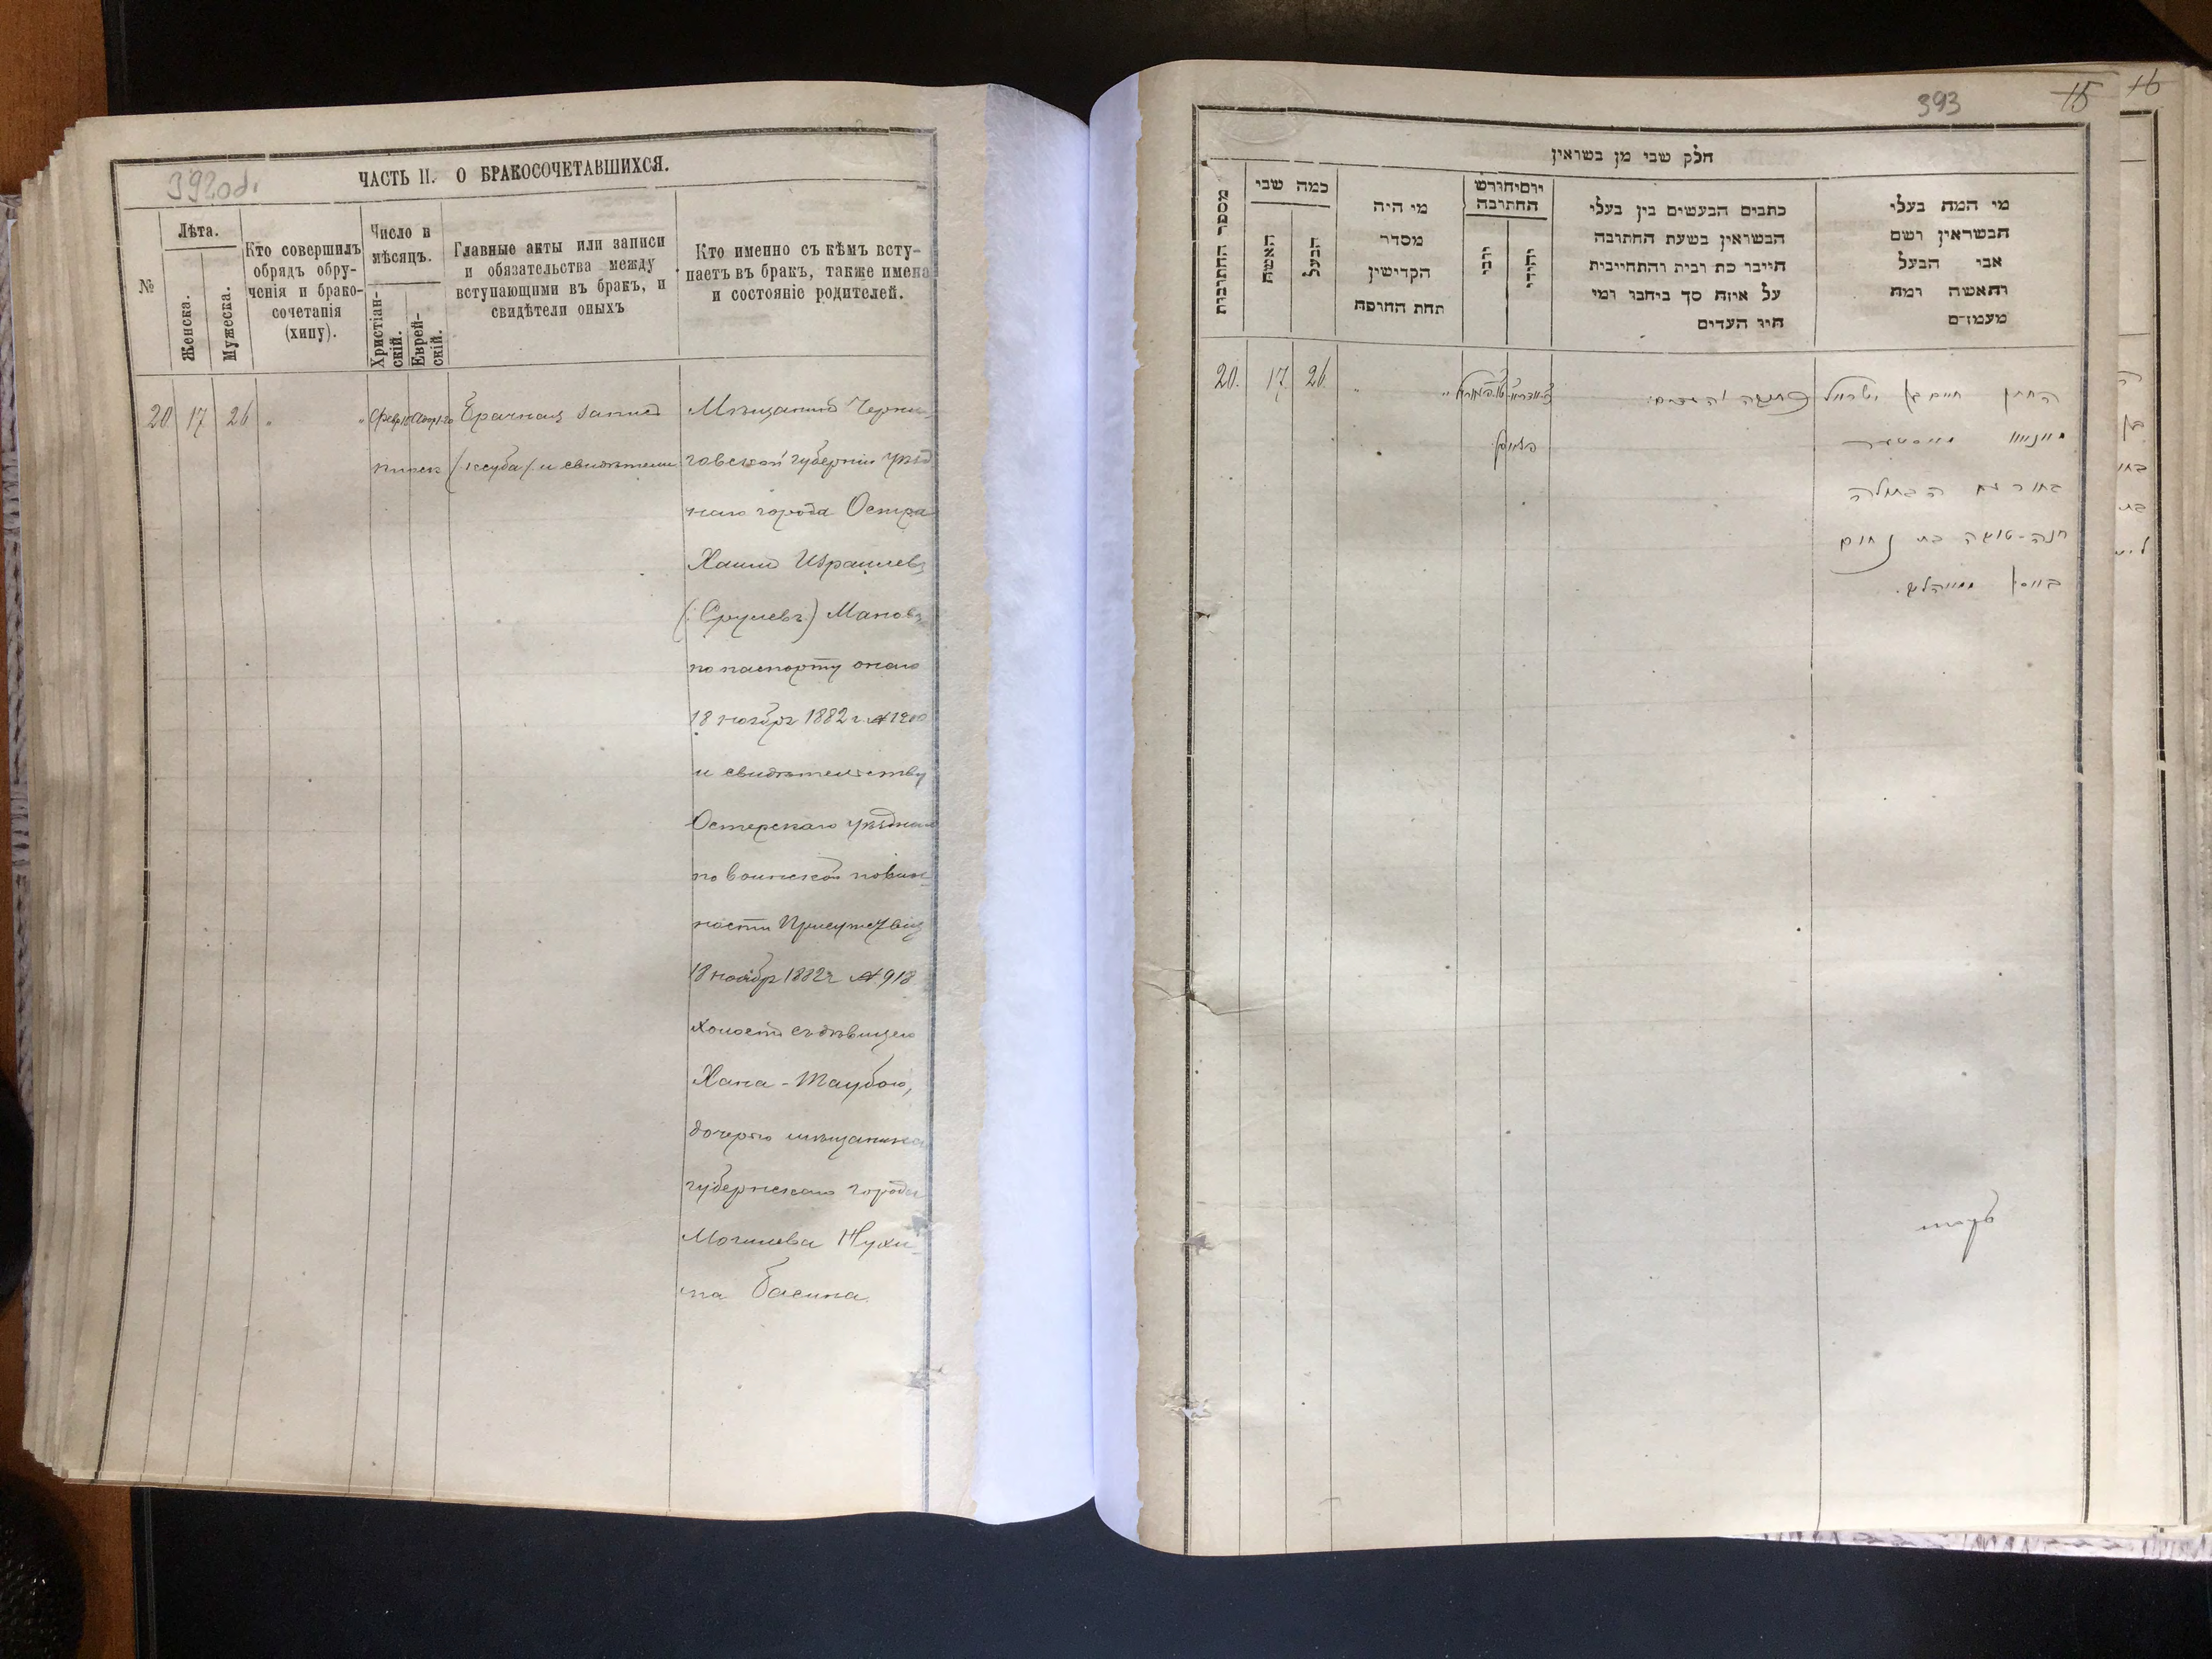 392об.
ЧАСТЬ II. О БРАКОСОЧЕТАВШИХСЯ.
№
Лѣта.
Женска.
Мужеска.
Кто совершилъ
обрядъ обру-
ченія и брако-
сочетанія
(хипу).
Число и
мѣсяцъ.
Христіан-
скій.
Еврей-
скій.
Главные акты или записи
и обязательства между
вступающими въ бракъ, и
свидѣтели оныхъ
Кто именно съ кѣмъ всту-
паетъ въ бракъ, также имена
и состояніе родителей.
20 17 26 "
Брачная запись
(ксуба) и свидѣтели
Мѣщанинъ Черни-
говской губерніи уѣзд
наго города Остра
Хаимъ Израилевъ
(Срулевъ) Мановъ
по паспорту онаго
18 ноября 1882 г. №
и свидѣтельству
Остерскаго уѣзднаго
по воинской повин-
ности Присутствія
18 ноября 1882 г № 918
холостъ съ дѣвицею
Хана-Таубою,
дочерью мѣщанина
губернскаго города
Могилева Нухи-
ма Басина.
393
15
16
חלק שבי מן בשואין
מספר החתובות
כמה שבי
האשה
הבעל
מי היה
מסדר
הקדישין
תחת החופה
יום וחורש
החתובה
כתבים הבעשים בין בעלי
הבשואין בשעת החתובה
חייבו כת ובית והתחייבית
על איזה סך ביחבו ומי
היו העדים
מי המה בעלי
הבשואין ושם
אבי הבעל
והאשה ומה
מעמדם
20. 17 26 "
החתן חיים בן ישראל
בחור עם הבתולה
חנה-טויבה בת נחום